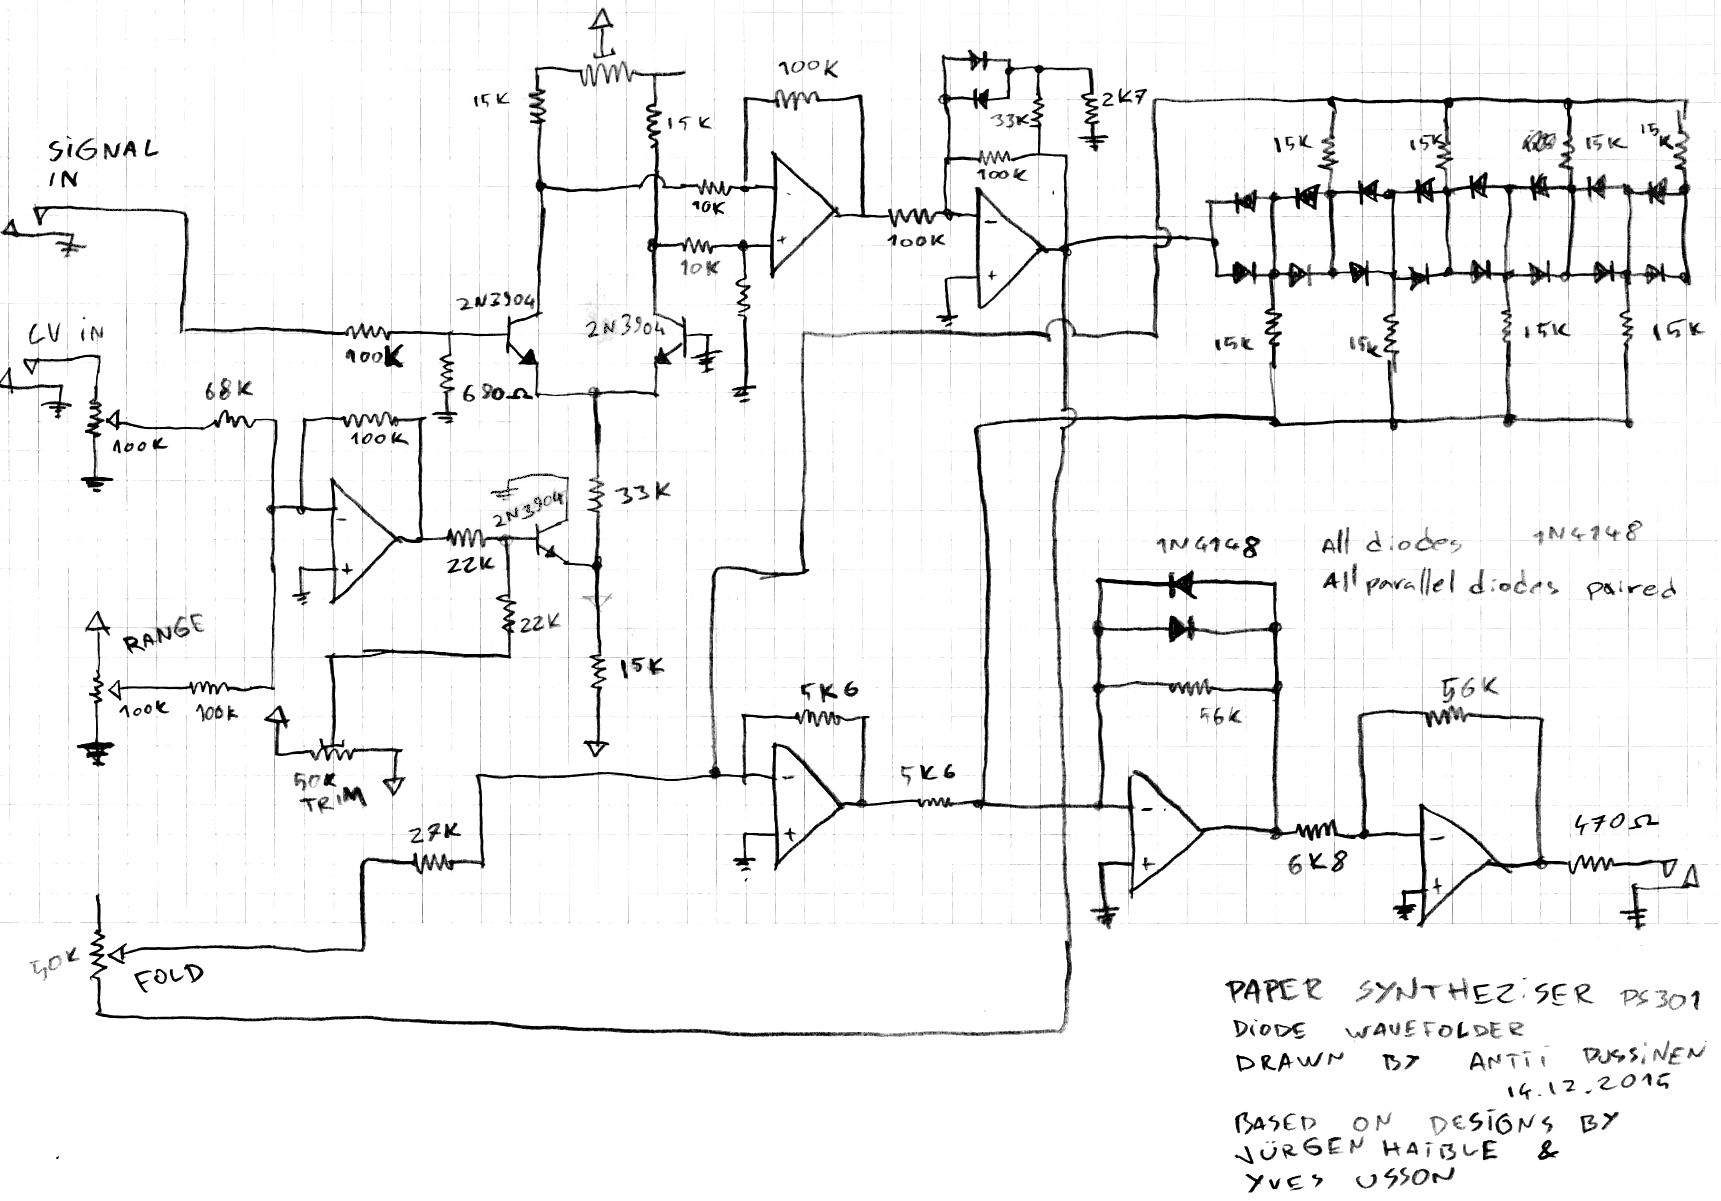 SIGNAL
IN
CV IN
100K
68K
100K
100K
RANGE
100K
100K
50K
TRIM
27K
FOLD
15K
15K
2N3904
2N3904
680Ω
10K
10K
100K
100K
33K
2K7
100K
2N3904
22K
22K
33K
15K
15K
15K
15K
15K
15K
15K
15K
15K
5K6
5K6
1N4148
56K
6K8
56K
470Ω
All diodes 1N4148
All parallel diodes paired
PAPER SYNTHEZiSER PS301
DiODE WAVEFOLDER
DRAWN BY ANTTi PUSSiNEN
14.12.2015
BASED ON DESiGNS BY
JÜRGEN HAiBLE &
YVES USSON